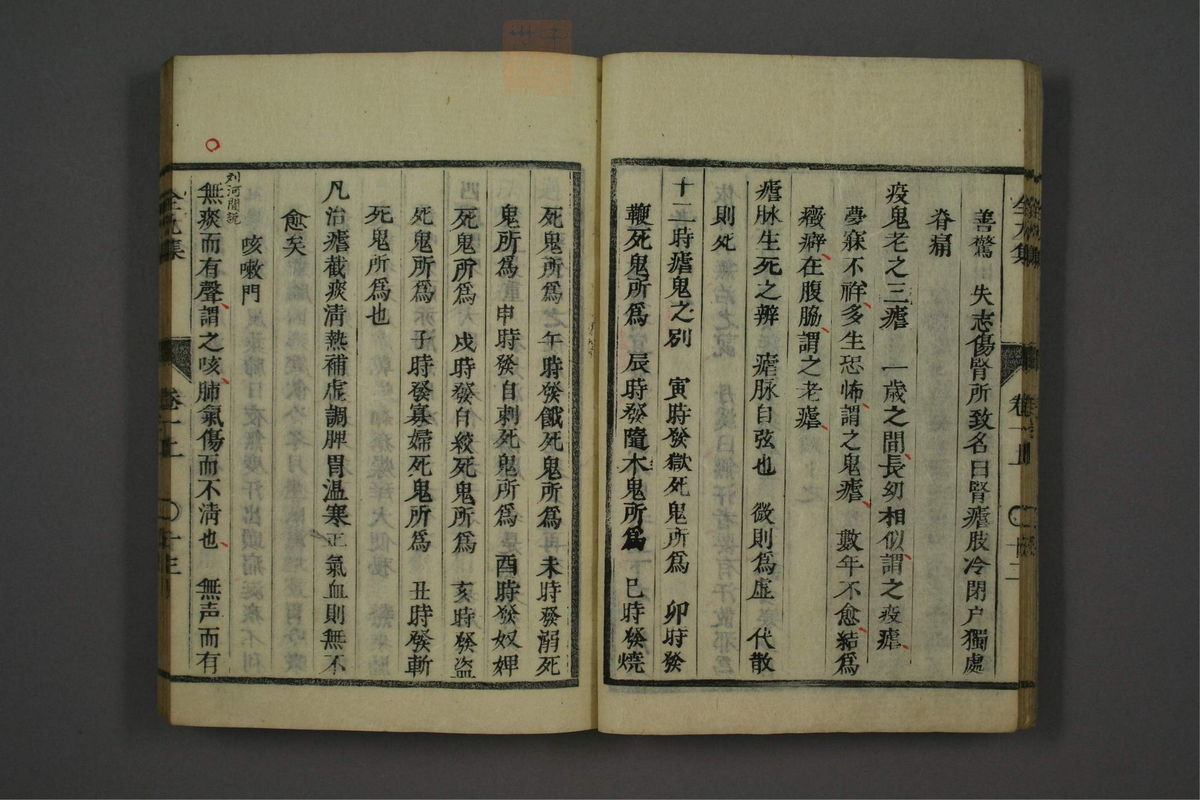 善驚 失志傷腎所致名曰腎瘧肢冷閉户獨處
脊痛
疫鬼老之三瘧 一歳之間長幼相似謂之疫瘧
夢寐不祥多生恐怖謂之鬼瘧 數年不愈結爲
癥癖在腹脇謂之老瘧
瘧脉生死之辨 瘧脉自弦也 微則爲虚 代散
則死
十二時瘧鬼之别 寅時發獄死鬼所爲 卯時發
鞭死鬼所爲 辰時發墮木鬼所爲 巳時發燒
死鬼所爲 午時發餓死鬼所爲 未時發溺死
鬼所爲 申時發自刺死鬼所爲 酉時發奴婢
死鬼所爲 戌時發自絞死鬼所爲 亥時發盜
死鬼所爲 子時發寡婦死鬼所爲 丑時發斬
死鬼所爲也
凡治瘧截痰清熱補虚調脾胃温寒正氣血則無不
愈矣
咳嗽門
刘河間説
無痰而有聲謂之咳肺氣傷而不清也 無声而有
全九集
卷一上
十三